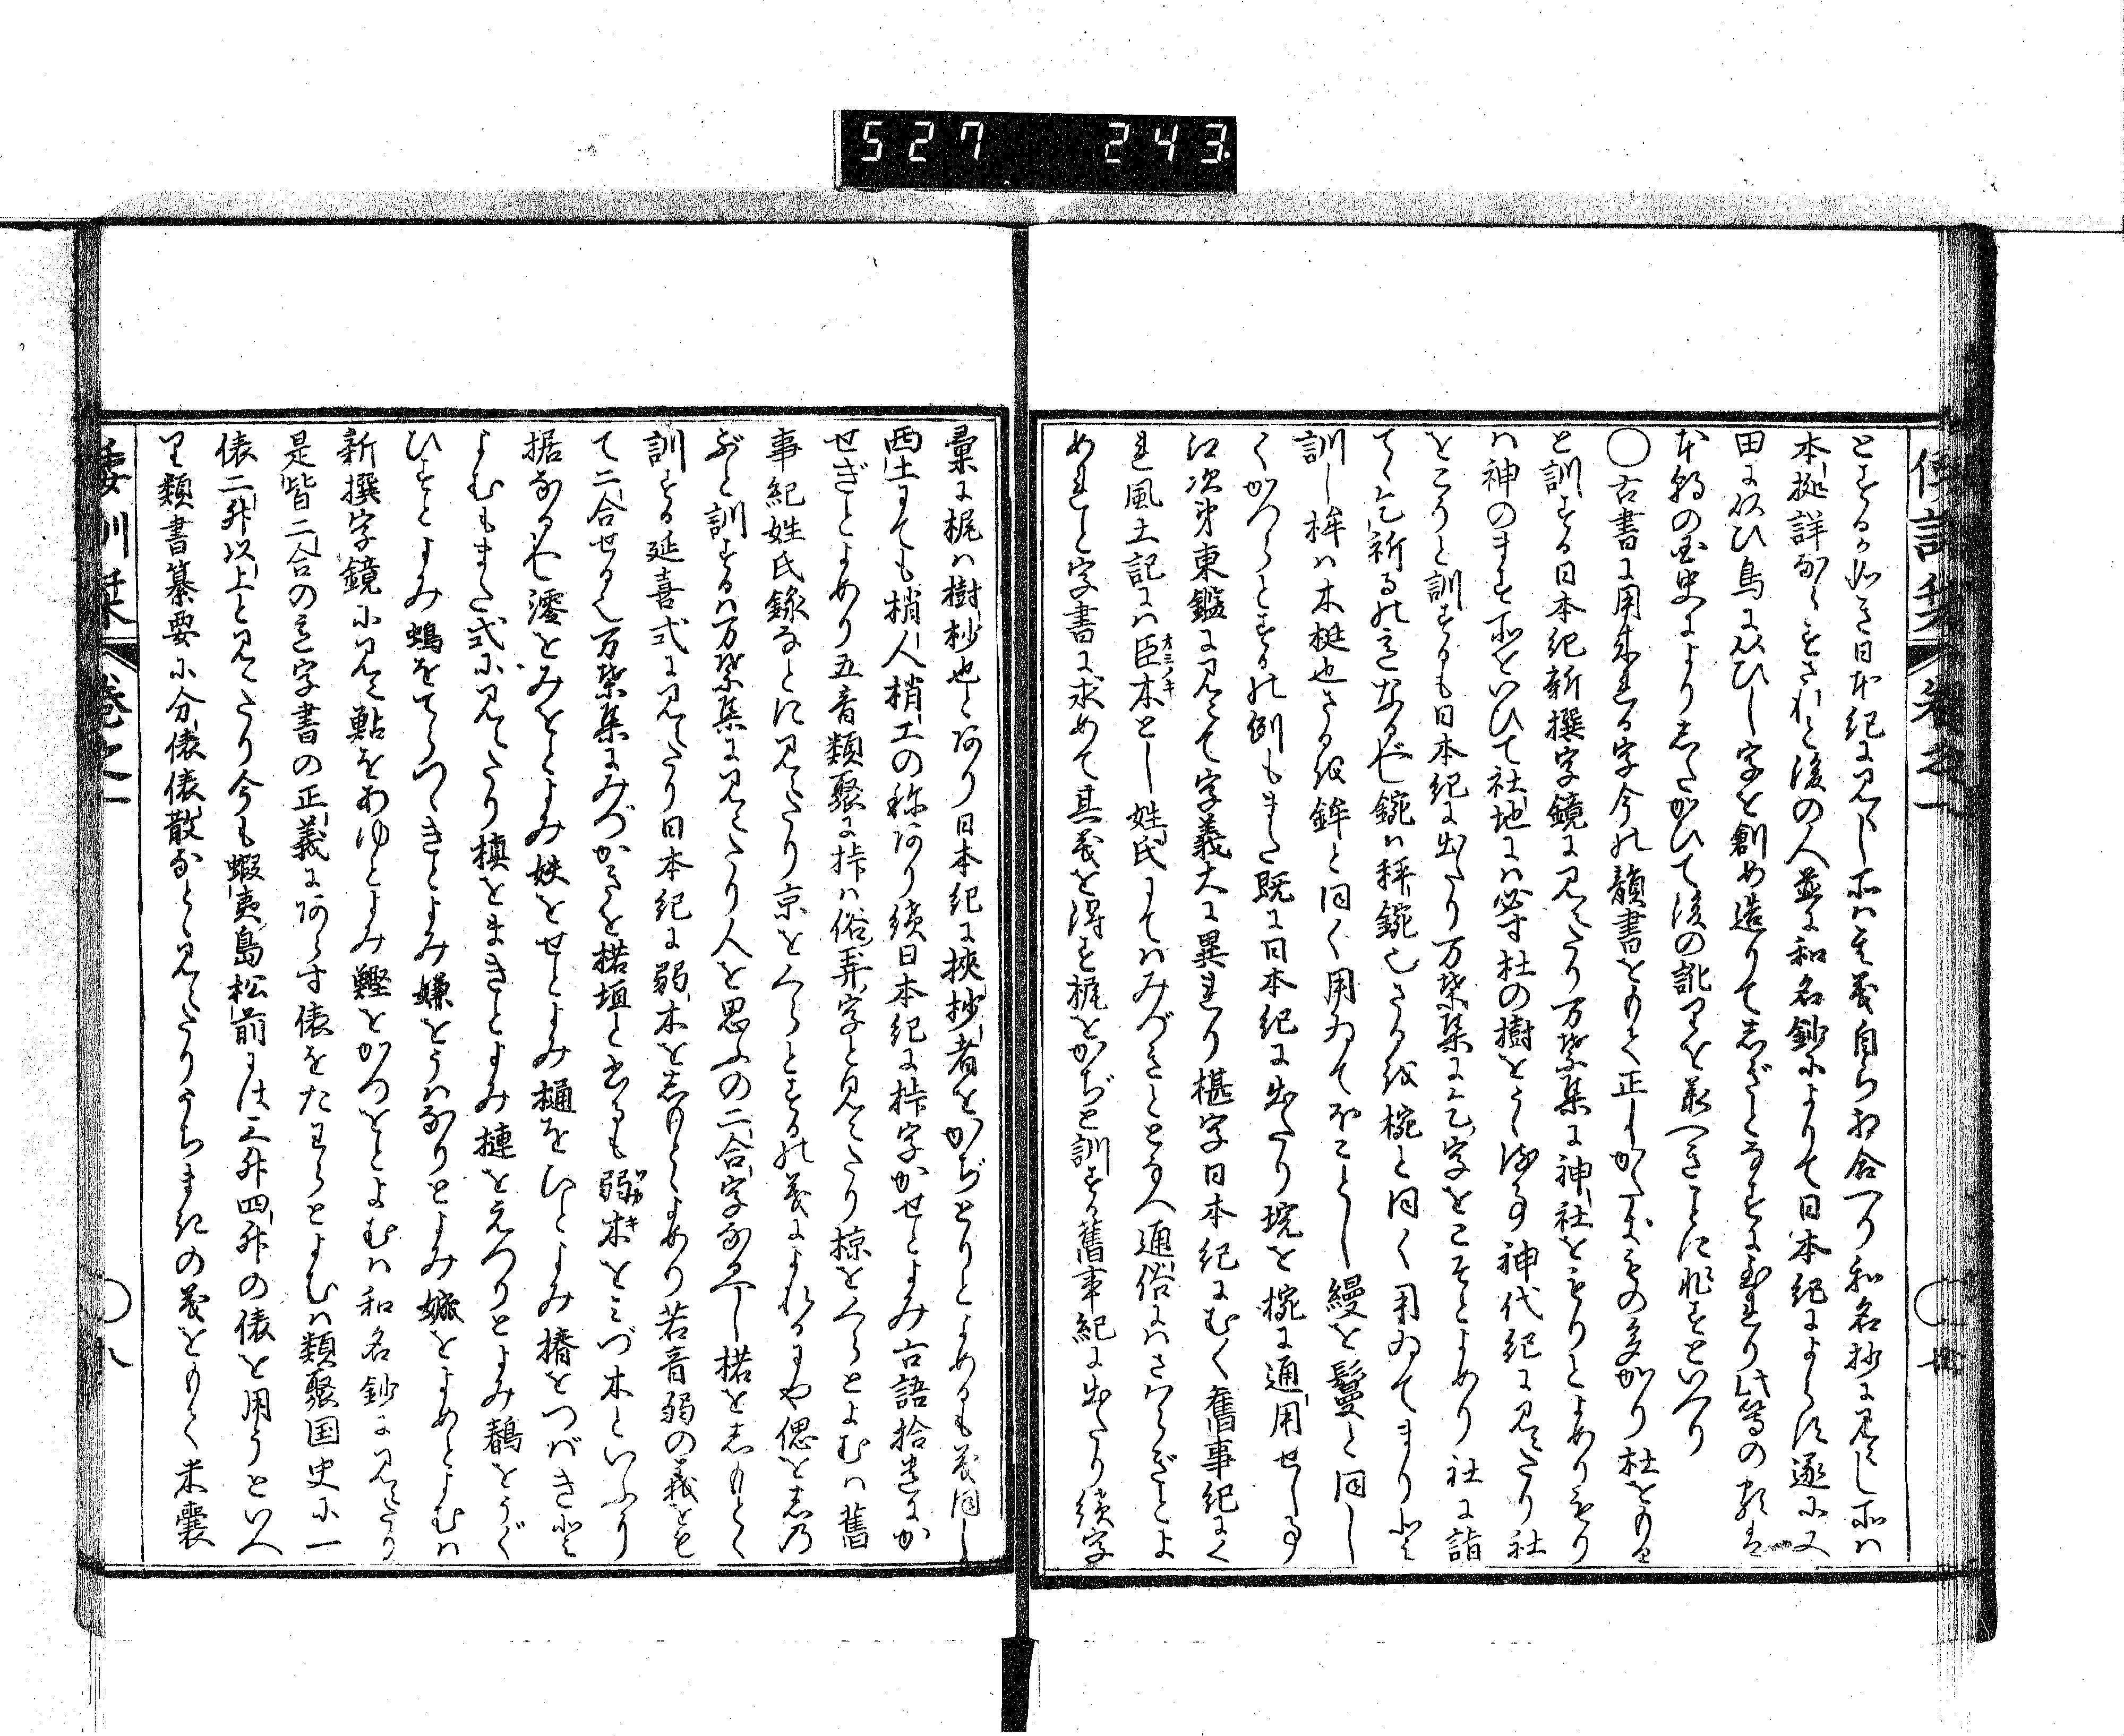 527 243
倭訓栞 卷之一
とするか如き日本紀に見へし所は其義自ら相合へり和名抄に見えし所は
本拠詳ならすされと後の人並に和名鈔によりて日本紀によらす遂に又
田に从ひ鳥に从ひし字を創め造りてしぎとなすに至れり此等の類は
本朝の国史によりしたがひて後の訛りを承へきことに非すといへり
〇古書に用来れる字今の韻書をもて正しがたきもの多かり杜をもり
と訓する日本紀新撰字鏡に見えたり万葉集に神社をもりとよめりもり
は神のます所をいひて社地には必す杜の樹をうゝる事神代紀に見えたり社
をこりと訓するも日本紀に出たり万葉集に乞字をこそとよめり社に詣
てゝ乞祈るの意なるべし鋺は秤鋺也さるを椀と同く用ゐてまりと
訓し桙は木梃也さるを鉾と同く用ゐてほことし縵を鬘と同し
くかつらとするの例もまた既に日本紀に出たり埦を椀に通用せし事
江次第東鑑に見えて字義大に異れり椹字日本紀にむく旧事紀にく
れ風土記には臣木オミノキとし姓氏にてはみづきととなへ通俗にはさはらぎとよ
めれと字書に求めて其義を得す梶をかぢと訓する舊事紀に出たり続字
彙に梶は樹杪也とあり日本紀に挾抄者をかぢとりとよめるも義同し
西土にても梢人梢工の称あり続日本紀に㭓字かせとよみ古語拾遺にか
せぎとよめり五音類聚に㭓は俗弄字と見えたり椋をくらとよむは舊
事紀姓氏録なとに見えたり京をくらとするの義によれるにや偲を志乃
ぶと訓するは万葉集に見えたり人を思ふの二合字なるべし楉を志もとゝ
訓する延喜式に見えたり日本紀に弱木を志もとゝよめり若音弱の義をも
て二合せる也万葉集にみづかきを楉垣と書るも弱木ワカキをみづ木といふに
据なるべし澪をみをとよみ妋をせとよみ樋をひとよみ椿をつばきと
よむもまた式に見えたり槙をまきとよみ槤をえつりとよみ鶺をうぐ
ひすとよみ鵤をてらつゝきとよみ嫌をうはなりとよみ嫁をよめとよむは
新撰字鏡に見え鮎をあゆとよみ鰹をかつをとよむは和名鈔に見えたり
是皆二合の意字書の正義にあらす俵をたわらとよむは類聚国史に一
俵二升以上と見えたり今も蝦夷島松前には三升四升の俵を用うといへ
り類書纂要に分俵俵散なとゝ見えたりうちまきの義をもて米嚢
倭訓栞 卷之一 〇八